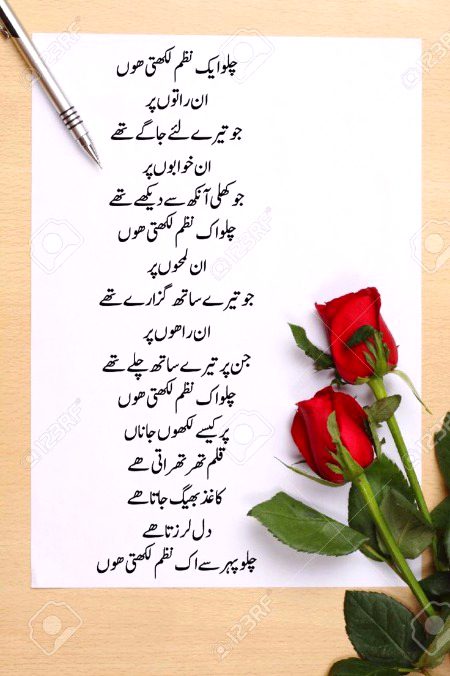 چلو ایک نظم لکھتی ھوں
ان راتوں پر
جو تیرے لئے جاگے تھے
ان خوابوں پر
جو کھلی آنکھ سے دیکھے تھے
چلو اک نظم لکھتی ھوں
ان لمحوں پر
جو تیرے ساتھ گزارے تھے
ان راھوں پر
جن پر تیرے ساتھ چلے تھے
چلو اک نظم لکھتی ھوں
پر کیسے لکھوں جاناں
قلم تھر تھراتی ھے
کاغذ بھیگ جاتا ھے
دل لرزتا ھے
چلو پھر سے اک نظم لکھتی ھوں
123RF